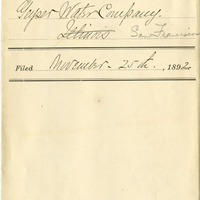 Geyser Water Company.
Illinois San Francisco
Filed November 25th, 1892